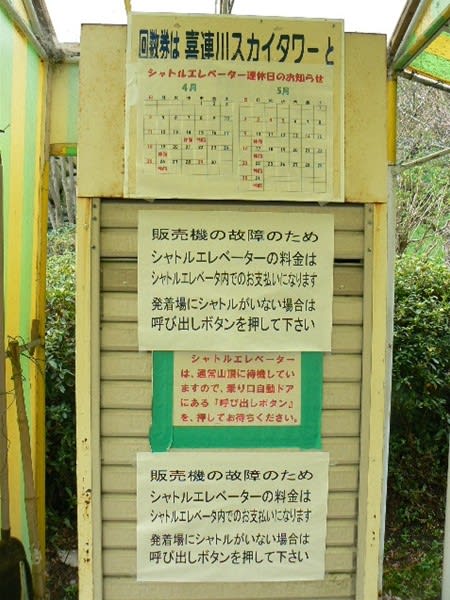 回数券は 喜連川スカイタワー と
シャトルエレベーター運休日のお知らせ
4月 5月
販売機の故障のため
シャトルエレベーターの料金は
シャトルエレベータ内でのお支払いになります
発着場にシャトルがいない場合は
呼び出しボタンを押して下さい
シャトルエレベーター
は、通常山頂に待機してい
ますので、乗り口自動ドア
にある『呼び出しボタン』
を、押してお待ちください。
販売機の故障のため
シャトルエレベーターの料金は
シャトルエレベータ内でのお支払いになります
発着場にシャトルがいない場合は
呼び出しボタンを押して下さい